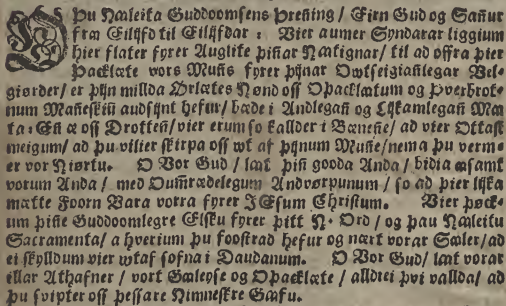 Þu Hæleita Guddoomsens Þrening / Eirn Gud og Sañur
fra Eilijfd til Eilijfdar : Vier aumer Syndarar liggium
hier flater fyrer Auglite þiñar Hætignar / til ad offra þier
Þacklæte vors Muñs fyrer þijnar Owtseigiañlegar Vel-
giørder / er þijn millda Ørlætes Hønd oss Oþacklætum og Þverbrot-
num Mañeskiñ audsijnt hefur / bæde i Andlegañ og Lijkamlegañ Mæ
ta : Eñ æ oss Drotteñ / vier erum so kallder i Bæneñe / ad vier Ottast
meigum / ad þu vilier skirpa oss wt af þijnum Muñe / nema þu verm-
er vor Hiørtu. O Vor Gud / læt þiñ gooda Anda / bidia æsamt
vorum Anda / med Oumrædelegum Andvørpunum / so ad þier lijka
mætte Foorn Vara vorra fyrer JEsum Christum. Vier þøck-
um þiñe Guddoomlegre Elsku fyrer þitt H. Ord / og þau Hæleitu
Sacramenta / a hverium þu foostrad hefur og nært vorar Sæler / ad
ei skylldum vier wtaf sofna i Daudanum. O Vor Gud / læt vorar
illar Athafner / vort Gæleyse og Oþacklæte / alldrei þvi vallda / ad
þu svipter oss þessare Himneskre Gæfu.